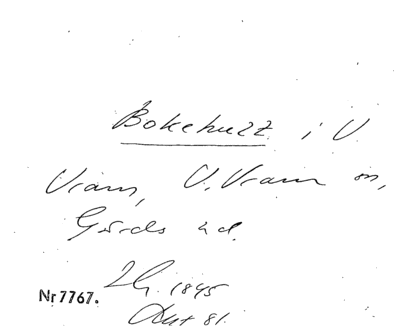 Bokehult i V.
Vram, V. Vram sn,
Gärds hd.
Nr 7767. 1845
81.